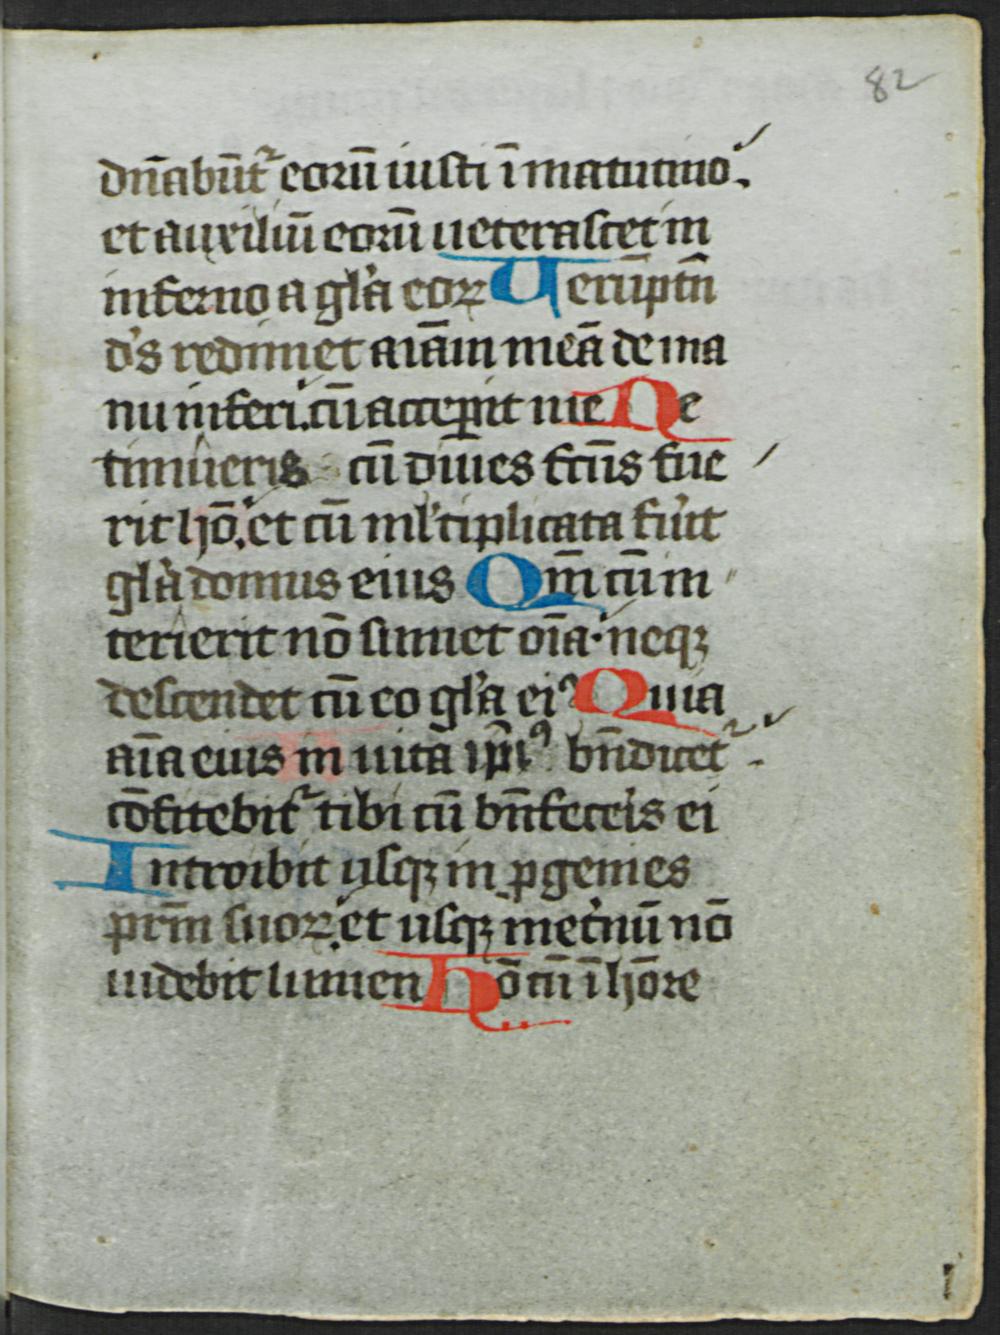 82
dn̄abūt᷑ eorū iusti ī matutino.
et auxiliū eorū ueterascet in
inferno a gl̓a eoꝝ Uerūptn̄
d̓s redimet aīam meā de ma
nu inferi. cū acceꝑit me Ne
timueris cū diues fc̄us fue
rit hō. et cū ml̓tiplicata fu̓it
gl̓a domus eius Qm̄ cū in
terierit nō sumet oīa. neqꝫ
descendet cū eo gl̓a eiꝰ Quia
aīa eius in uita ip̄iꝰ bn̄dicet᷑.
cōfitebit᷑ tibi cū bn̄fecel̓s ei
Introibit usqꝫ in ꝓgenies
pr̄m suoꝝ. et usqꝫ inet̓nū nō
uidebit lumen Hō cū ī hōre